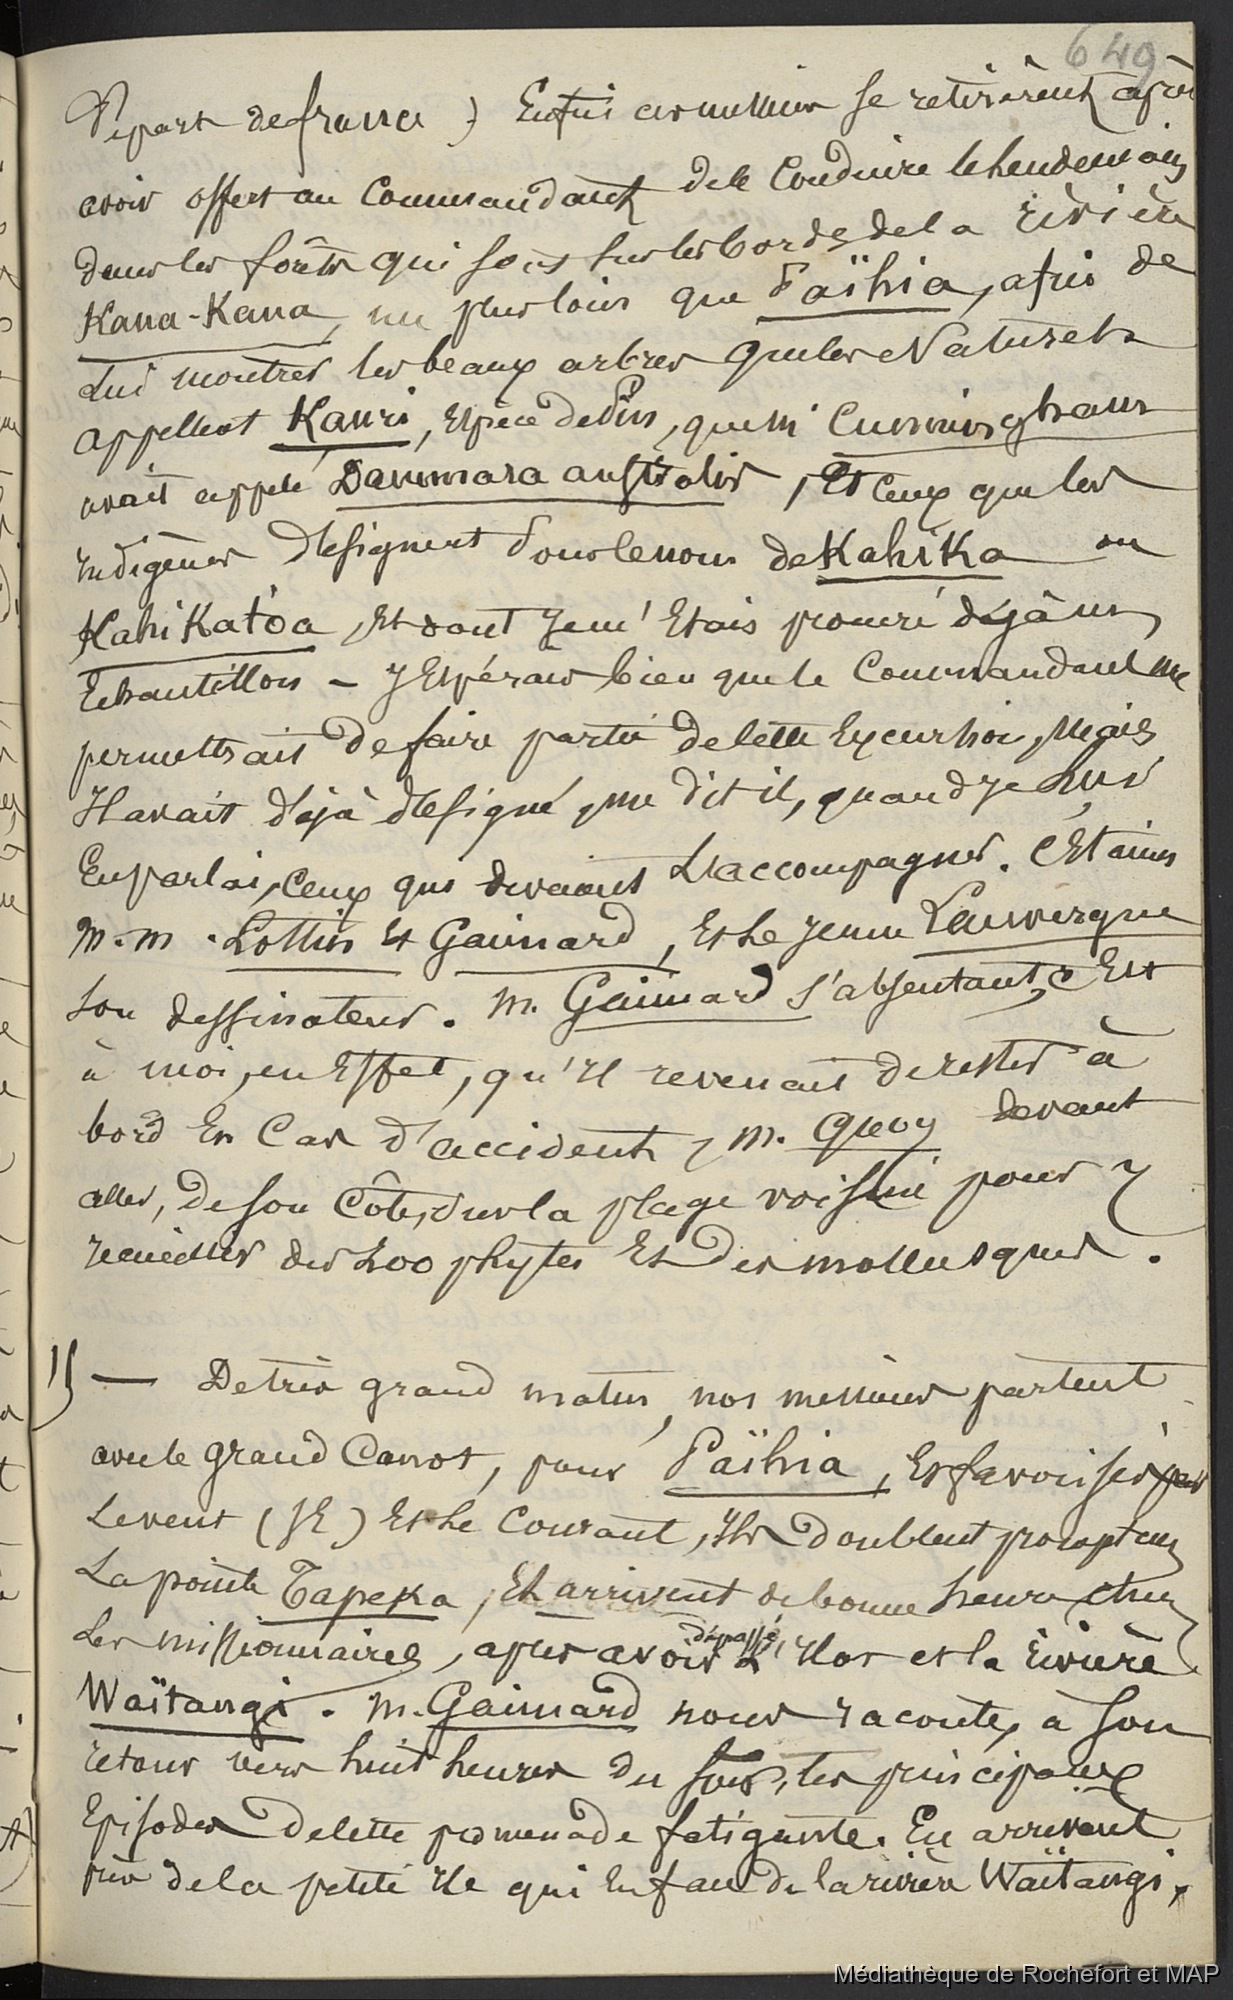 649
Départ de france) Enfin ces messieurs se retirèrent après
avoir offert au Commandant de le Conduire le lendemain
dans les forêts qui sont sur les bords de la rivière
Kana-Kana, un peu loin que Païhia, afin de
Lui montrer les beaux arbres que les Naturels
appellent Kauri, Espèce de Pin, que M. Cunningham
avait appelé Dammara australis, Et Ceux que les
indigènes désignent sous le nom de Kahika ou
Kahikatoa, Et dont Je m'Etais procuré déjà un
Echantillon - J'Espérais bien que le Commandant me
permettrait de faire partie de cette Excursion, Mais
Il avait déjà désigné, me dit il, quand Je lui
En parlai, Ceux qui devaient L'accompagner. C'Etaient
M.M. Lottin Et Gaimard, Et Le Jeune Lauvergne
son dessinateur. M. Gaimard s'absentant, c'Est
à moi, en Effet, qu'Il revenait de rester à
bord En Cas d'accident, M. Quoy devant
aller, De son Côté, sur la plage voisine pour y
recueillir des Zoophytes Et Des mollusques.
15 — De très grand matin, nos messieurs partent
avec le grand Canot, pour Païhia, Et favorisés par
Le vent (SE) Et Le Courant, Ils doublent prompt.
La pointe Tapeka, Et arrivent de bonne heure chez
Les missionnaires, après avoir dépassé L'Ilot et la rivière
Waïtangi. M. Gaimard nous raconte, à son
retour vers huit heures du soir, les principaux
Episodes De cette promenade fatigante. En arrivant
près de la petite Ile qui En face de la rivière Waïtangi,
Médiathèque de Rochefort et MAP